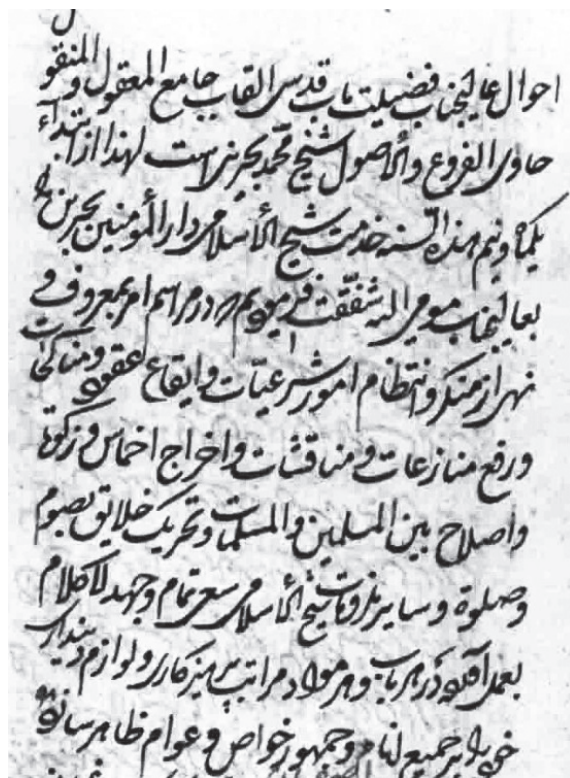 احوال عالیجناب فضیلت مآب قدسی القاب جامع المعقول والمنقول
حاوی الفروع والاصول شیخ محمد بحرینی است لهذا از ابتداء
یکماه ونیم هذه السنه خدمت شیخ الاسلامی دار المؤمنین بحرین را
بعالیجناب مومی الیه شفقت فرمودیم که در مراسم امر بمعروف و
نهی از منکر وانتظام امور شرعیات وایقاع عقود ومناکحات
ورفع منازعات ومناقشات واخراج اخماس وزکوة
واصلاح بین المسلمین والمسلمات وتحریک خلایق بصوم
وصلوة وسایر لازمات شیخ الاسلامی سعی تمام وجهد لاکلام
بعمل آورده در هر باب وهر مواد مراتب پرهیزکاری ولوازم دینداری
خود را بر جمیع انام وجمهور خواص وعوام ظاهر ساخته